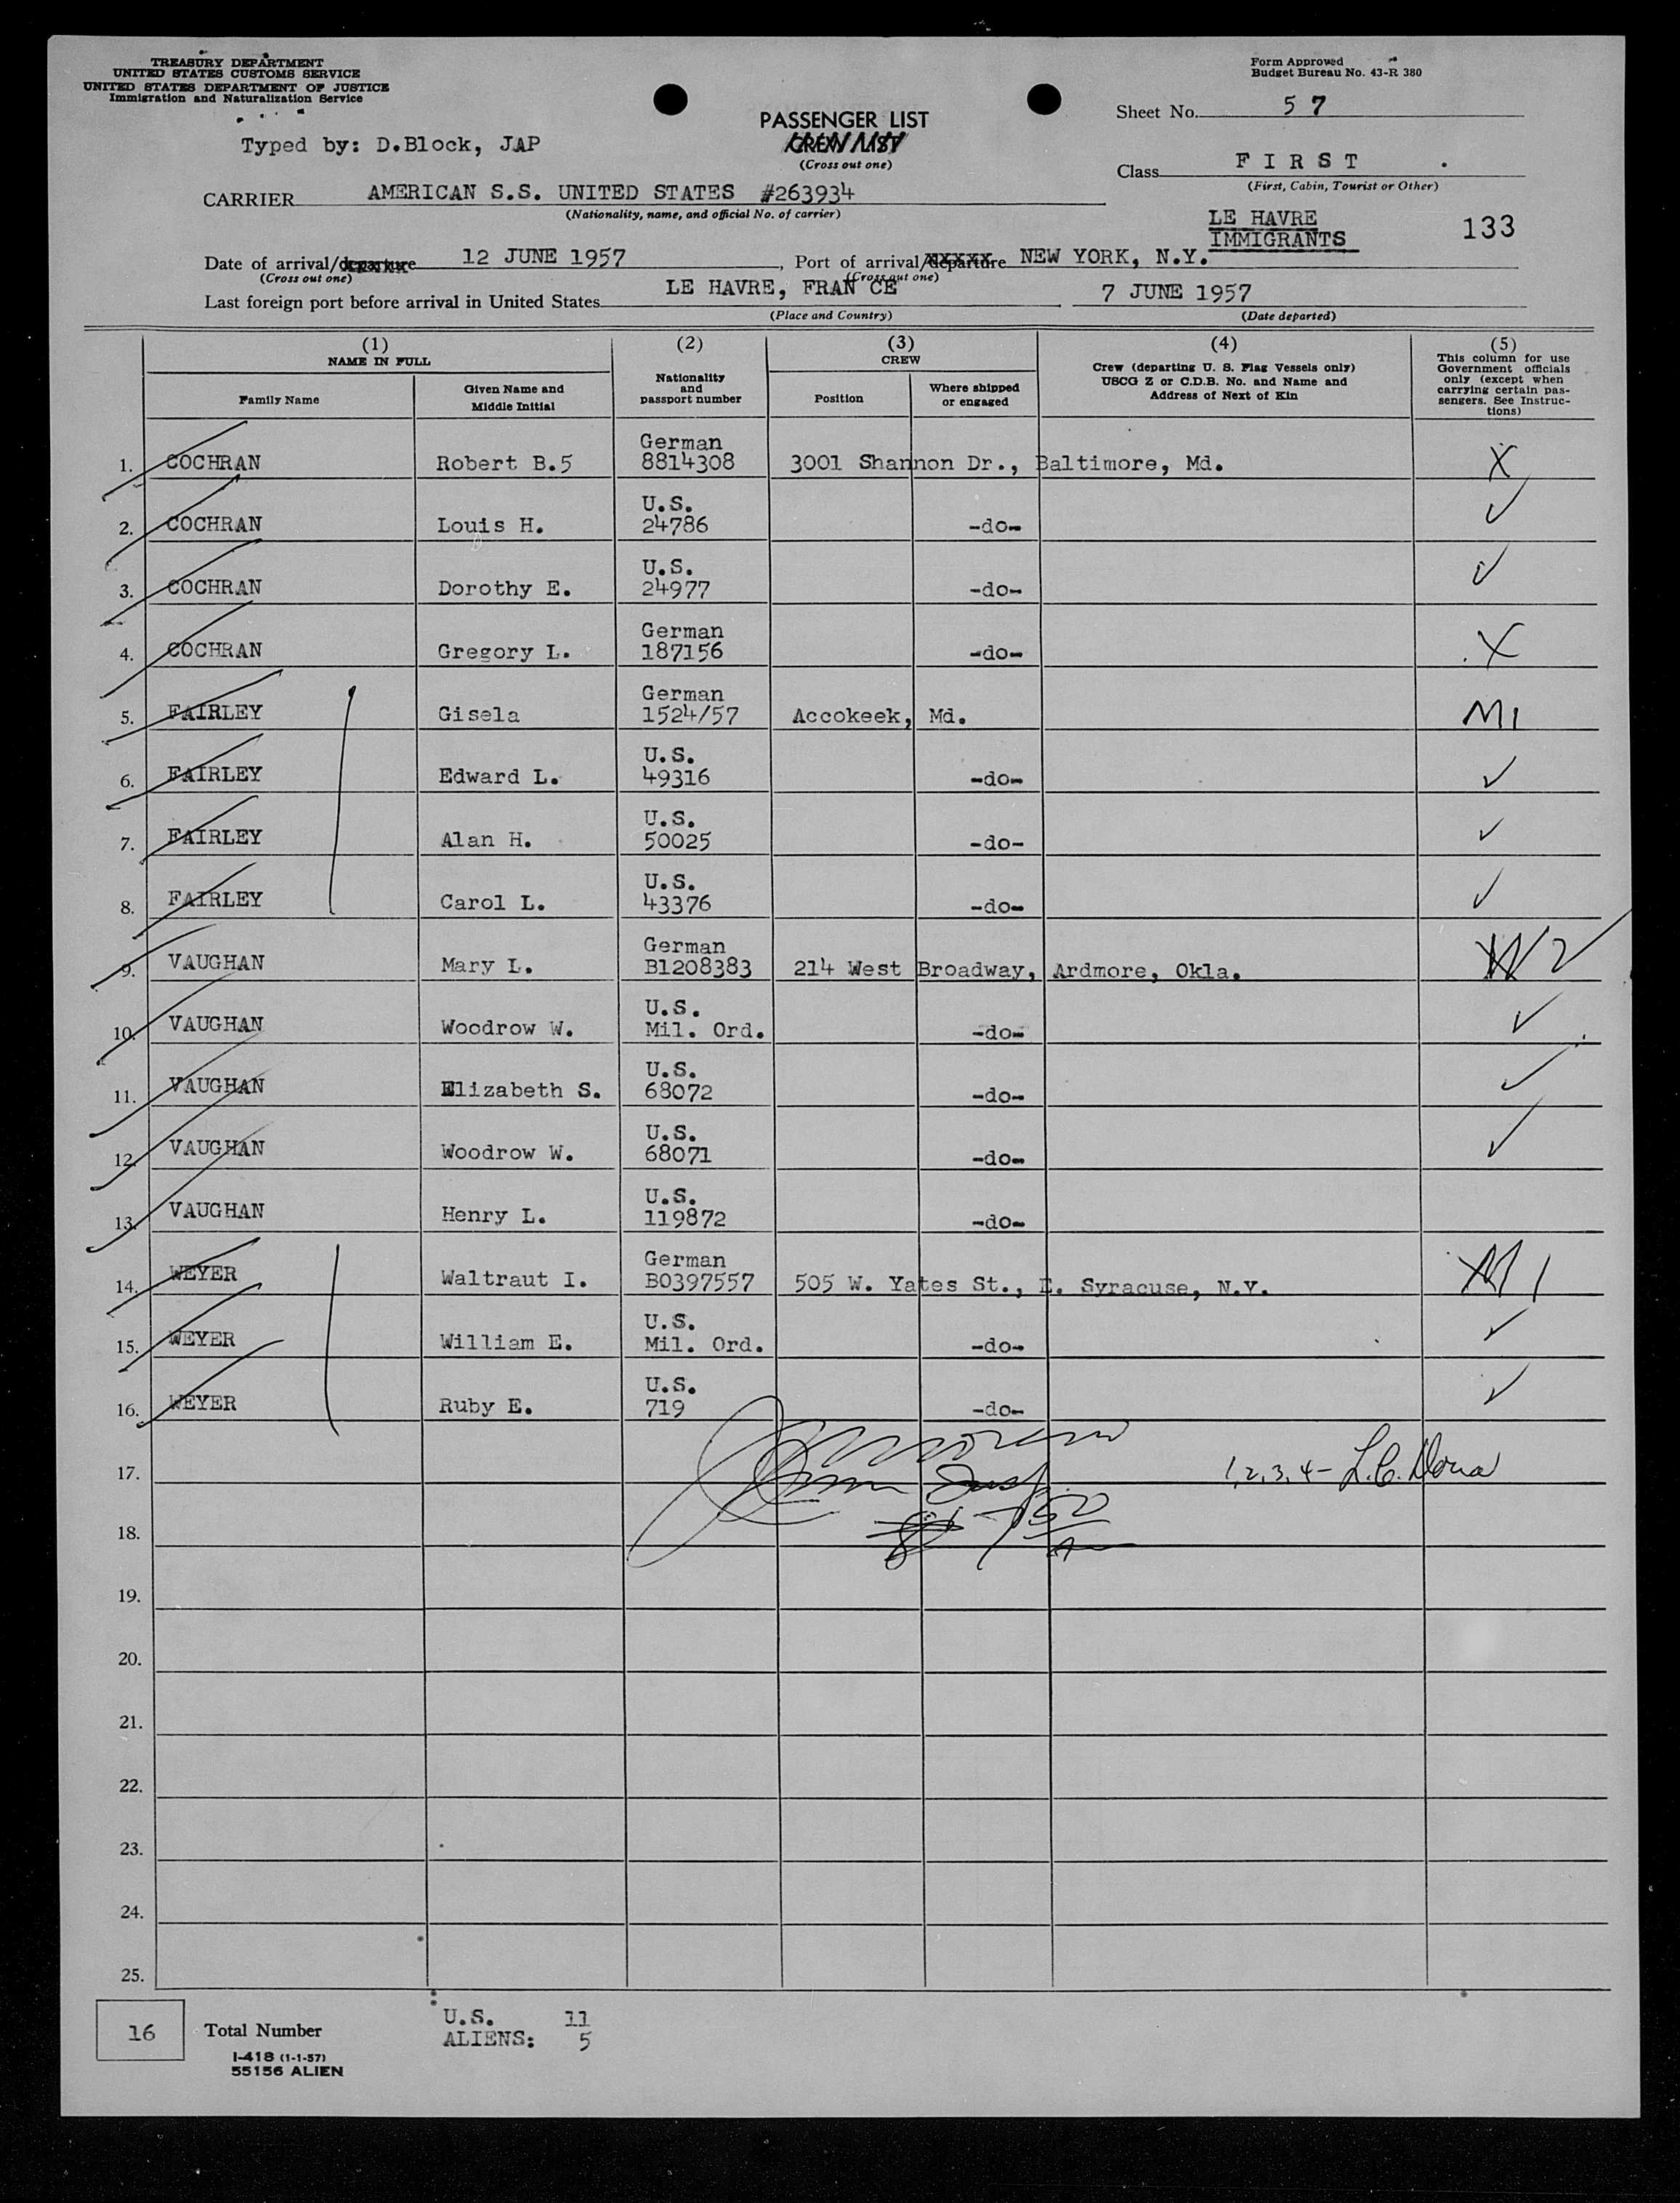 TREASURY DEPARTMENT
UNITED STATES CUSTOMS SERVICE
UNITED STATES DEPARTMENT OF JUSTICE
Immigration and Naturalization Service
Form Approved
Budget Bureau No. 43-R 380
Sheet No. 5 7
Typed by: D.Block, JAP
PASSENGER LIST
CREW LIST
(Cross out one)
Class F I R S T .
(First, Cabin, Tourist or Other)
CARRIER AMERICAN S.S. UNITED STATES #263934
(Nationality, name, and official No. of carrier)
LE HAVRE
IMMIGRANTS
133
Date of arrival/departure 12 JUNE 1957, Port of arrival/departure NEW YORK, N.Y.
(Cross out one) (Cross out one)
Last foreign port before arrival in United States LE HAVRE, FRAN CE 7 JUNE 1957
(Place and Country) (Date departed)
(1) (2) (3) (4) (5)
NAME IN FULL
Family Name
Given Name and Middle Initial
Nationality and passport number
CREW
Position
Where shipped or engaged
Crew (departing U. S. Flag Vessels only)
USCG Z or C.D.B. No. and Name and
Address of Next of Kin
This column for use
Government officials
only (except when
carrying certain pas-
sengers. See Instruc-
tions)
1. COCHRAN Robert B.5 German 8814308 3001 Shannon Dr., Baltimore, Md. X
2. COCHRAN Louis H. U.S. 24786 -do- ✓
3. COCHRAN Dorothy E. U.S. 24977 -do- ✓
4. COCHRAN Gregory L. German 187156 -do- X
5. FAIRLEY Gisela German 1524/57 Accokeek, Md. M1
6. FAIRLEY Edward L. U.S. 49316 -do- ✓
7. FAIRLEY Alan H. U.S. 50025 -do- ✓
8. FAIRLEY Carol L. U.S. 43376 -do- ✓
9. VAUGHAN Mary L. German B1208383 214 West Broadway, Ardmore, Okla.
10. VAUGHAN Woodrow W. U.S. Mil. Ord. -do- ✓
11. VAUGHAN Elizabeth S. U.S. 68072 -do- ✓
12. VAUGHAN Woodrow W. U.S. 68071 -do- ✓
13. VAUGHAN Henry L. U.S. 119872 -do-
14. WEYER Waltraut I. German B0397557 505 W. Yates St., E. Syracuse, N.Y. M1
15. WEYER William E. U.S. Mil. Ord. -do- ✓
16. WEYER Ruby E. U.S. 719 -do- ✓
17. 1,2,3,4 -
18.
19.
20.
21.
22.
23.
24.
25.
16 Total Number
U.S. 11
ALIENS: 5
I-418 (1-1-57)
55156 ALIEN